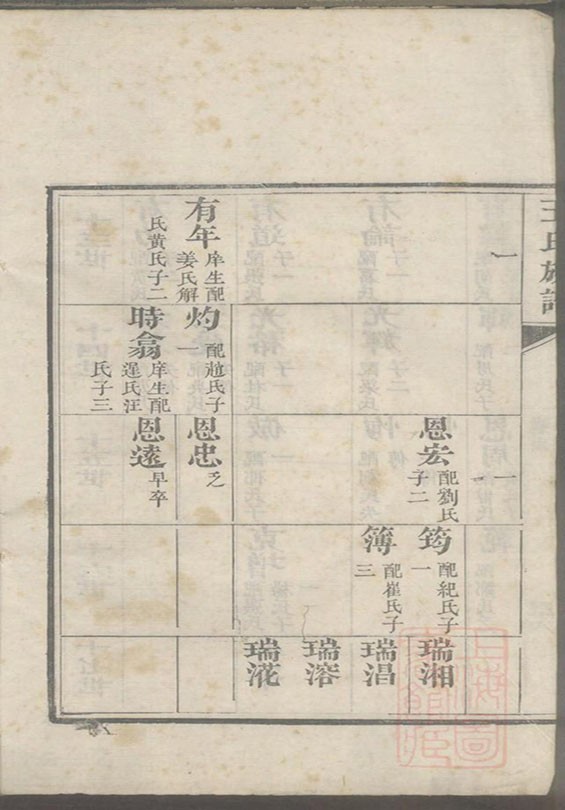 王氏族譜
一
一
恩宏 配劉氏
子二
筠 配紀氏子
一
瑞湘
簿 配崔氏子
三
瑞淐
瑞溶
瑞湰
有年 庠生配
姜氏解
氏黃氏子二
灼 配趙氏子
一
恩忠 乏
時翕 庠生配
遲氏汪
氏子三
恩遠 早卒